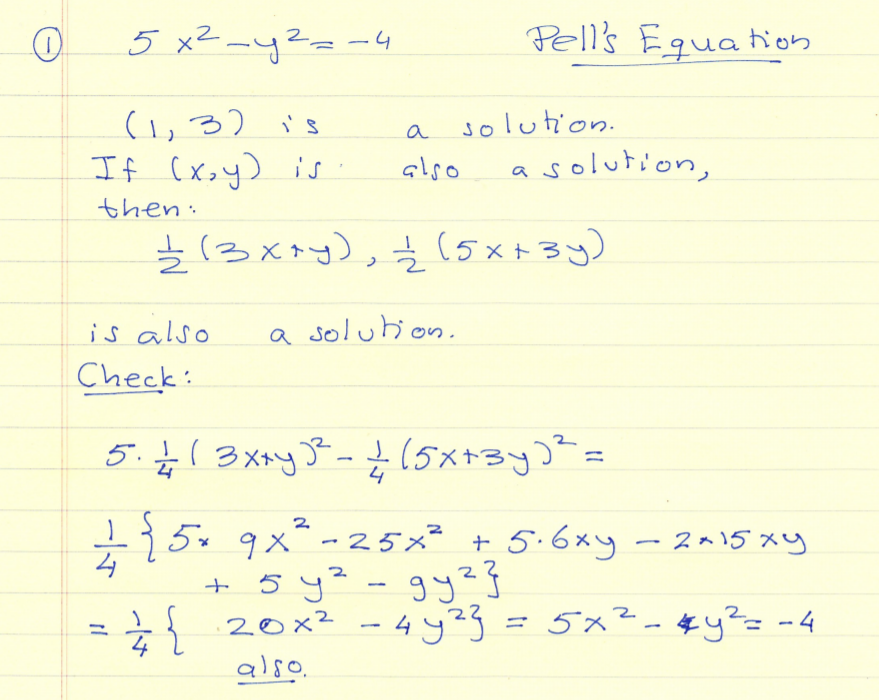 ① 5x² - y² = -4 Pell's Equation
(1, 3) is a solution.
If (x,y) is also a solution,
then:
½(3x+y), ½(5x+3y)
is also a solution.
Check:
5·¼(3x+y)² - ¼(5x+3y)² =
¼{5× 9x² - 25x² + 5·6xy - 2×15xy
+ 5y² - 9y²}
= ¼{20x² - 4y²} = 5x² - y² = -4
also.